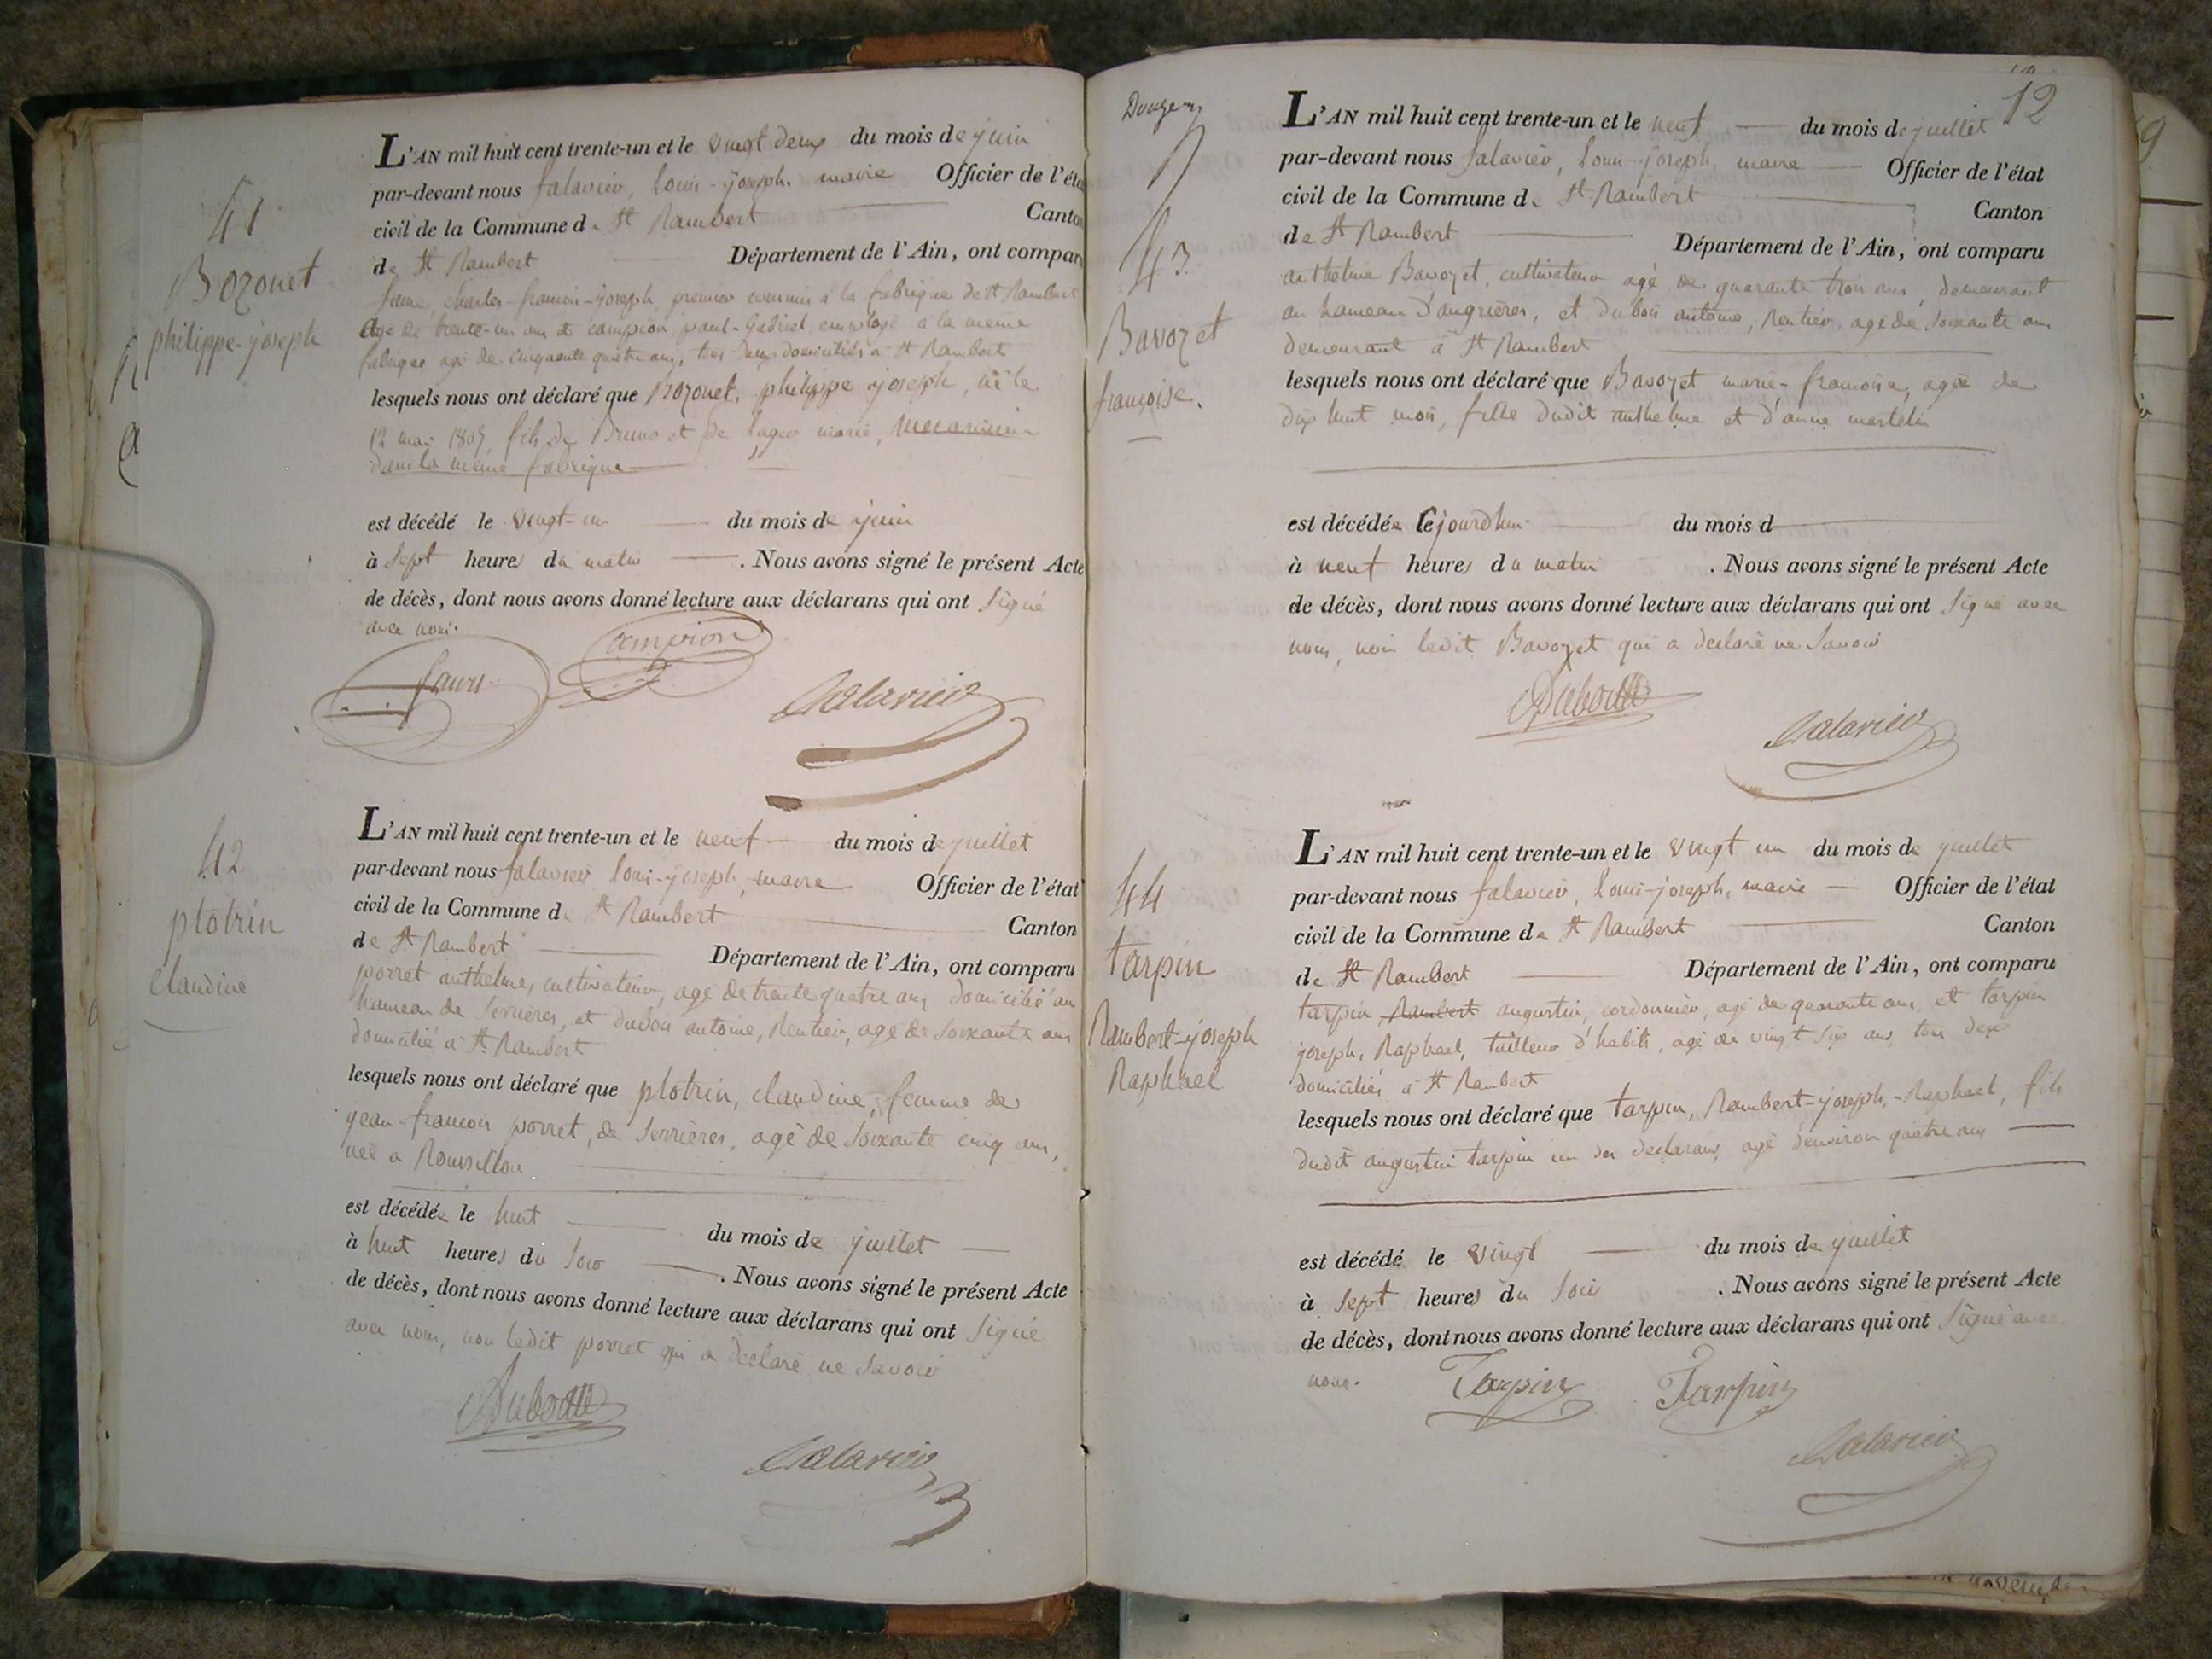 41
Bozonet
philippe-joseph
L'AN mil huit cent trente-un et le vingt deux du mois de juin
par-devant nous falavier, louis-joseph, maire Officier de l'éta
civil de la Commune de St Rambert Canton
de St Rambert Département de l'Ain, ont comparu
faure, charles-francois-joseph, premier commis à la fabrique de St Rambert
agé de trente-un ans et campion paul-Gabriel, employé a la meme
fabrique agé de cinquante quatre ans, tous deux domiciliés à St Rambert
lesquels nous ont déclaré que Bozonet, philippe joseph, né le
12 mai fils de Bruno et de marie, mecanicien
dans la meme fabrique
est décédé le vingt-un du mois de juin
à sept heures du matin . Nous avons signé le présent Acte
de décès, dont nous avons donné lecture aux déclarans qui ont signé
avec nous.
faure campion
falavier
42
plotrin
claudine
L'AN mil huit cent trente-un et le neuf du mois de juillet
par-devant nous falavier louis-joseph, maire Officier de l'état
civil de la Commune de St Rambert Canton
de St Rambert Département de l'Ain, ont comparu
porret anthelme, cultivateur, agé de trente quatre ans domicilié au
hameau de Serrières, et dubois antoine, Rentier, agé de soixante ans
domicilié à St Rambert
lesquels nous ont déclaré que plotrin, claudine, femme de
jean-francois porret, de Serrières, agé de soixante cinq ans,
née a
est décédée le huit du mois de juillet
à huit heures du soir . Nous avons signé le présent Acte
de décès, dont nous avons donné lecture aux déclarans qui ont signé
avec nous, non ledit porret qui a déclaré ne savoir
Dubois
falavier
12
43
Bavozet
françoise.
L'AN mil huit cent trente-un et le neuf du mois de juillet
par-devant nous falavier, louis-joseph, maire Officier de l'état
civil de la Commune de St Rambert Canton
de St Rambert Département de l'Ain, ont comparu
anthelme Bavozet, cultivateur agé de quarante trois ans, demeurant
au hameau d'angrières, et dubois antoine, Rentier, agé de soixante ans
demeurant à St Rambert
lesquels nous ont déclaré que Bavozet marie-francoise, agée de
dix huit mois, fille dudit anthelme et d'anne martelin
est décédée cejourdhui du mois d
à neuf heures du matin . Nous avons signé le présent Acte
de décès, dont nous avons donné lecture aux déclarans qui ont signé avec
nous, non ledit Bavozet qui a déclaré ne savoir
Dubois
falavier
44
tarpin
Rambert-joseph
Raphael
L'AN mil huit cent trente-un et le vingt un du mois de juillet
par-devant nous falavier, louis-joseph, maire Officier de l'état
civil de la Commune de St Rambert Canton
de St Rambert Département de l'Ain, ont comparu
tarpin Rambert augustin, cordonnier, agé de quarante ans, et tarpin
joseph, Raphael, tailleur d'habits, agé de vingt six ans, tous deux
domiciliés à St Rambert
lesquels nous ont déclaré que tarpin, Rambert-joseph,-Raphael, fils
dudit augustin tarpin un des declarans, agé d'environ quatre ans
est décédé le vingt du mois de juillet
à sept heures du soir . Nous avons signé le présent Acte
de décès, dont nous avons donné lecture aux déclarans qui ont signé avec
nous.
Tarpin Tarpin
falavier